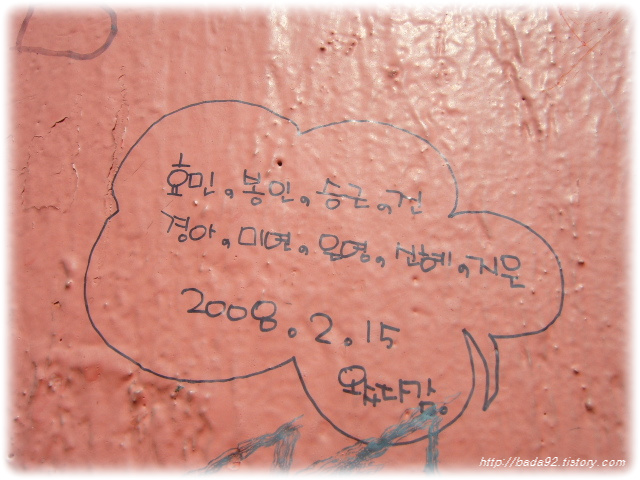 효민, 봉인, 승근, 건
경아, 미연, 윤영, 신혜, 지운
2008. 2. 15
왔다감.
http://bada92.tistory.com